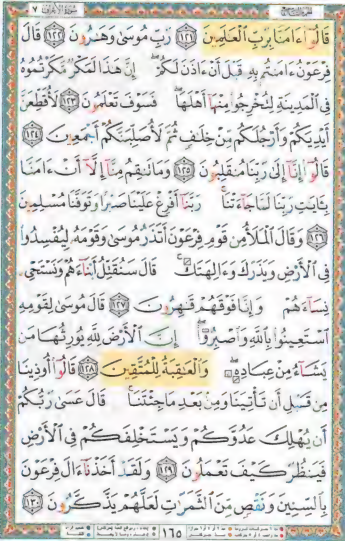 سورة الأعراف ٧
قَالُوٓا۟ ءَامَنَّا بِرَبِّ ٱلْعَـٰلَمِينَ ١٢١ رَبِّ مُوسَىٰ وَهَـٰرُونَ ١٢٢ قَالَ
فِرْعَوْنُ ءَامَنتُم بِهِۦ قَبْلَ أَنْ ءَاذَنَ لَكُمْ ۖ إِنَّ هَـٰذَا لَمَكْرٌ مَّكَرْتُمُوهُ
فِى ٱلْمَدِينَةِ لِتُخْرِجُوا۟ مِنْهَآ أَهْلَهَا ۖ فَسَوْفَ تَعْلَمُونَ ١٢٣ لَأُقَطِّعَنَّ
أَيْدِيَكُمْ وَأَرْجُلَكُم مِّنْ خِلَـٰفٍ ثُمَّ لَأُصَلِّبَنَّكُمْ أَجْمَعِينَ ١٢٤
قَالُوٓا۟ إِنَّآ إِلَىٰ رَبِّنَا مُنقَلِبُونَ ١٢٥ وَمَا تَنقِمُ مِنَّآ إِلَّآ أَنْ ءَامَنَّا
بِـَٔايَـٰتِ رَبِّنَا لَمَّا جَآءَتْنَا ۚ رَبَّنَآ أَفْرِغْ عَلَيْنَا صَبْرًا وَتَوَفَّنَا مُسْلِمِينَ
١٢٦ وَقَالَ ٱلْمَلَأُ مِن قَوْمِ فِرْعَوْنَ أَتَذَرُ مُوسَىٰ وَقَوْمَهُۥ لِيُفْسِدُوا۟
فِى ٱلْأَرْضِ وَيَذَرَكَ وَءَالِهَتَكَ ۚ قَالَ سَنُقَتِّلُ أَبْنَآءَهُمْ وَنَسْتَحْىِۦ
نِسَآءَهُمْ وَإِنَّا فَوْقَهُمْ قَـٰهِرُونَ ١٢٧ قَالَ مُوسَىٰ لِقَوْمِهِ
ٱسْتَعِينُوا۟ بِٱللَّهِ وَٱصْبِرُوٓا۟ ۖ إِنَّ ٱلْأَرْضَ لِلَّهِ يُورِثُهَا مَن
يَشَآءُ مِنْ عِبَادِهِۦ ۖ وَٱلْعَـٰقِبَةُ لِلْمُتَّقِينَ ١٢٨ قَالُوٓا۟ أُوذِينَا
مِن قَبْلِ أَن تَأْتِيَنَا وَمِنۢ بَعْدِ مَا جِئْتَنَا ۚ قَالَ عَسَىٰ رَبُّكُمْ
أَن يُهْلِكَ عَدُوَّكُمْ وَيَسْتَخْلِفَكُمْ فِى ٱلْأَرْضِ
فَيَنظُرَ كَيْفَ تَعْمَلُونَ ١٢٩ وَلَقَدْ أَخَذْنَآ ءَالَ فِرْعَوْنَ
بِٱلسِّنِينَ وَنَقْصٍ مِّنَ ٱلثَّمَرَٰتِ لَعَلَّهُمْ يَذَّكَّرُونَ ١٣٠
١٦٥